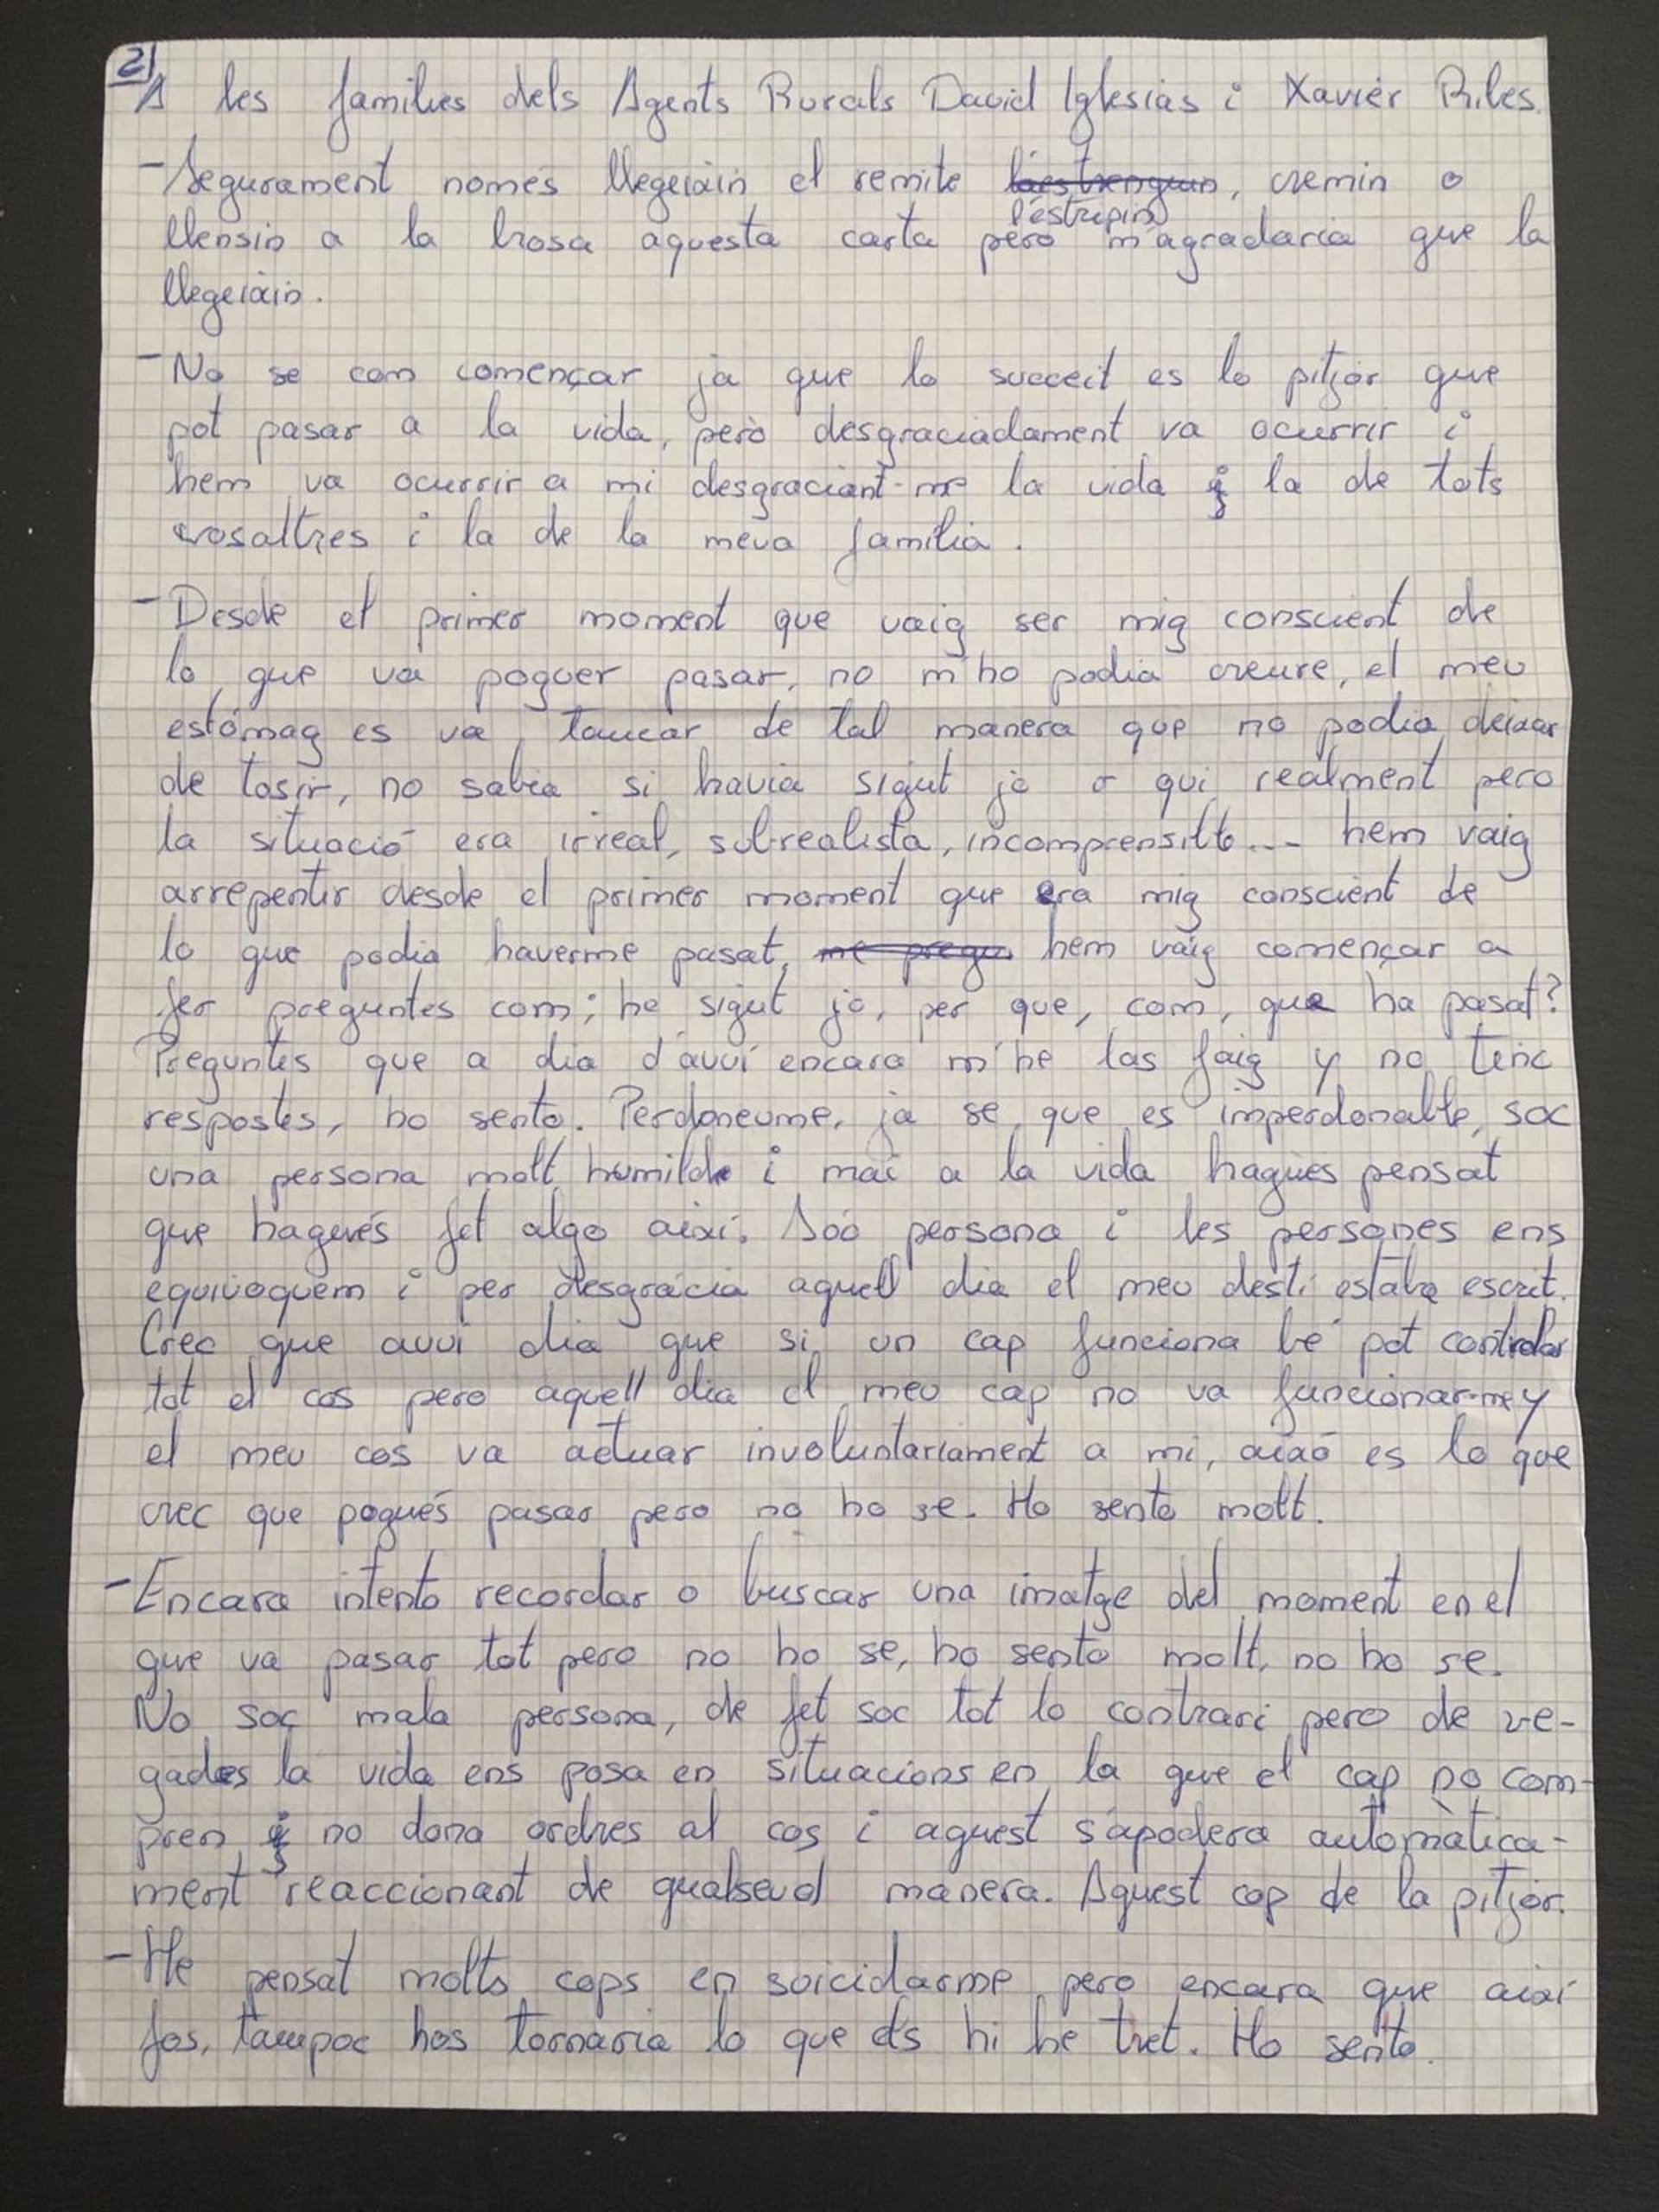 2)
A les families dels Agents Rurals David Iglesias i Xavier Ribes.
-Segurament nomes llegeixin el remite, cremin o
l'estripin
llensin a la brosa aquesta carta pero m'agradaria que la
llegeixin.
-No se com començar ja que lo succeit es lo pitjor que
pot pasar a la vida, però desgraciadament va ocurrir i
hem va ocurrir a mi desgraciant-me la vida i la de tots
vosaltres i la de la meva familia.
-Desde el primer moment que vaig ser mig conscient de
lo que va poguer pasar, no m'ho podia creure, el meu
estómag es va tancar de tal manera que no podia deixar
de tosir, no sabia si havia sigut jo o qui realment pero
la situació era irreal, sub-realista, incomprensible... hem vaig
arrepentir desde el primer moment que era mig conscient de
lo que podia haverme pasat, me pregu hem vaig començar a
fer preguntes com; he sigut jo, per que, com, que ha pasat?
Preguntes que a dia d'avui encara m'he las faig y no tinc
respostes, ho sento. Perdoneume, ja se que es imperdonable, soc
una persona molt humilde i mai a la vida hagues pensat
que hagués fet algo aixi. Sóc persona i les persones ens
equivoquem i per desgracia aquell dia el meu destí estaba escrit.
Crec que avui dia que si un cap funciona be pot controlar
tot el cos pero aquell dia el meu cap no va funcionar-me y
el meu cos va actuar involuntariament a mi, aixó es lo que
crec que pogués pasar pero no ho se. Ho sento molt.
-Encara intento recordar o buscar una imatge del moment en el
que va pasar tot pero no ho se, ho sento molt, no ho se.
No soc mala persona, de fet soc tot lo contrari pero de ve-
gades la vida ens posa en situacions en la que el cap no com-
pren i no dona ordres al cos i aquest s'apodera automàtica-
ment reaccionant de qualsevol manera. Aquest cop de la pitjor.
-He pensat molts cops en soicidarme pero encara que aixi
fos, tampoc hos tornaria lo que els hi he tret. Ho sento.